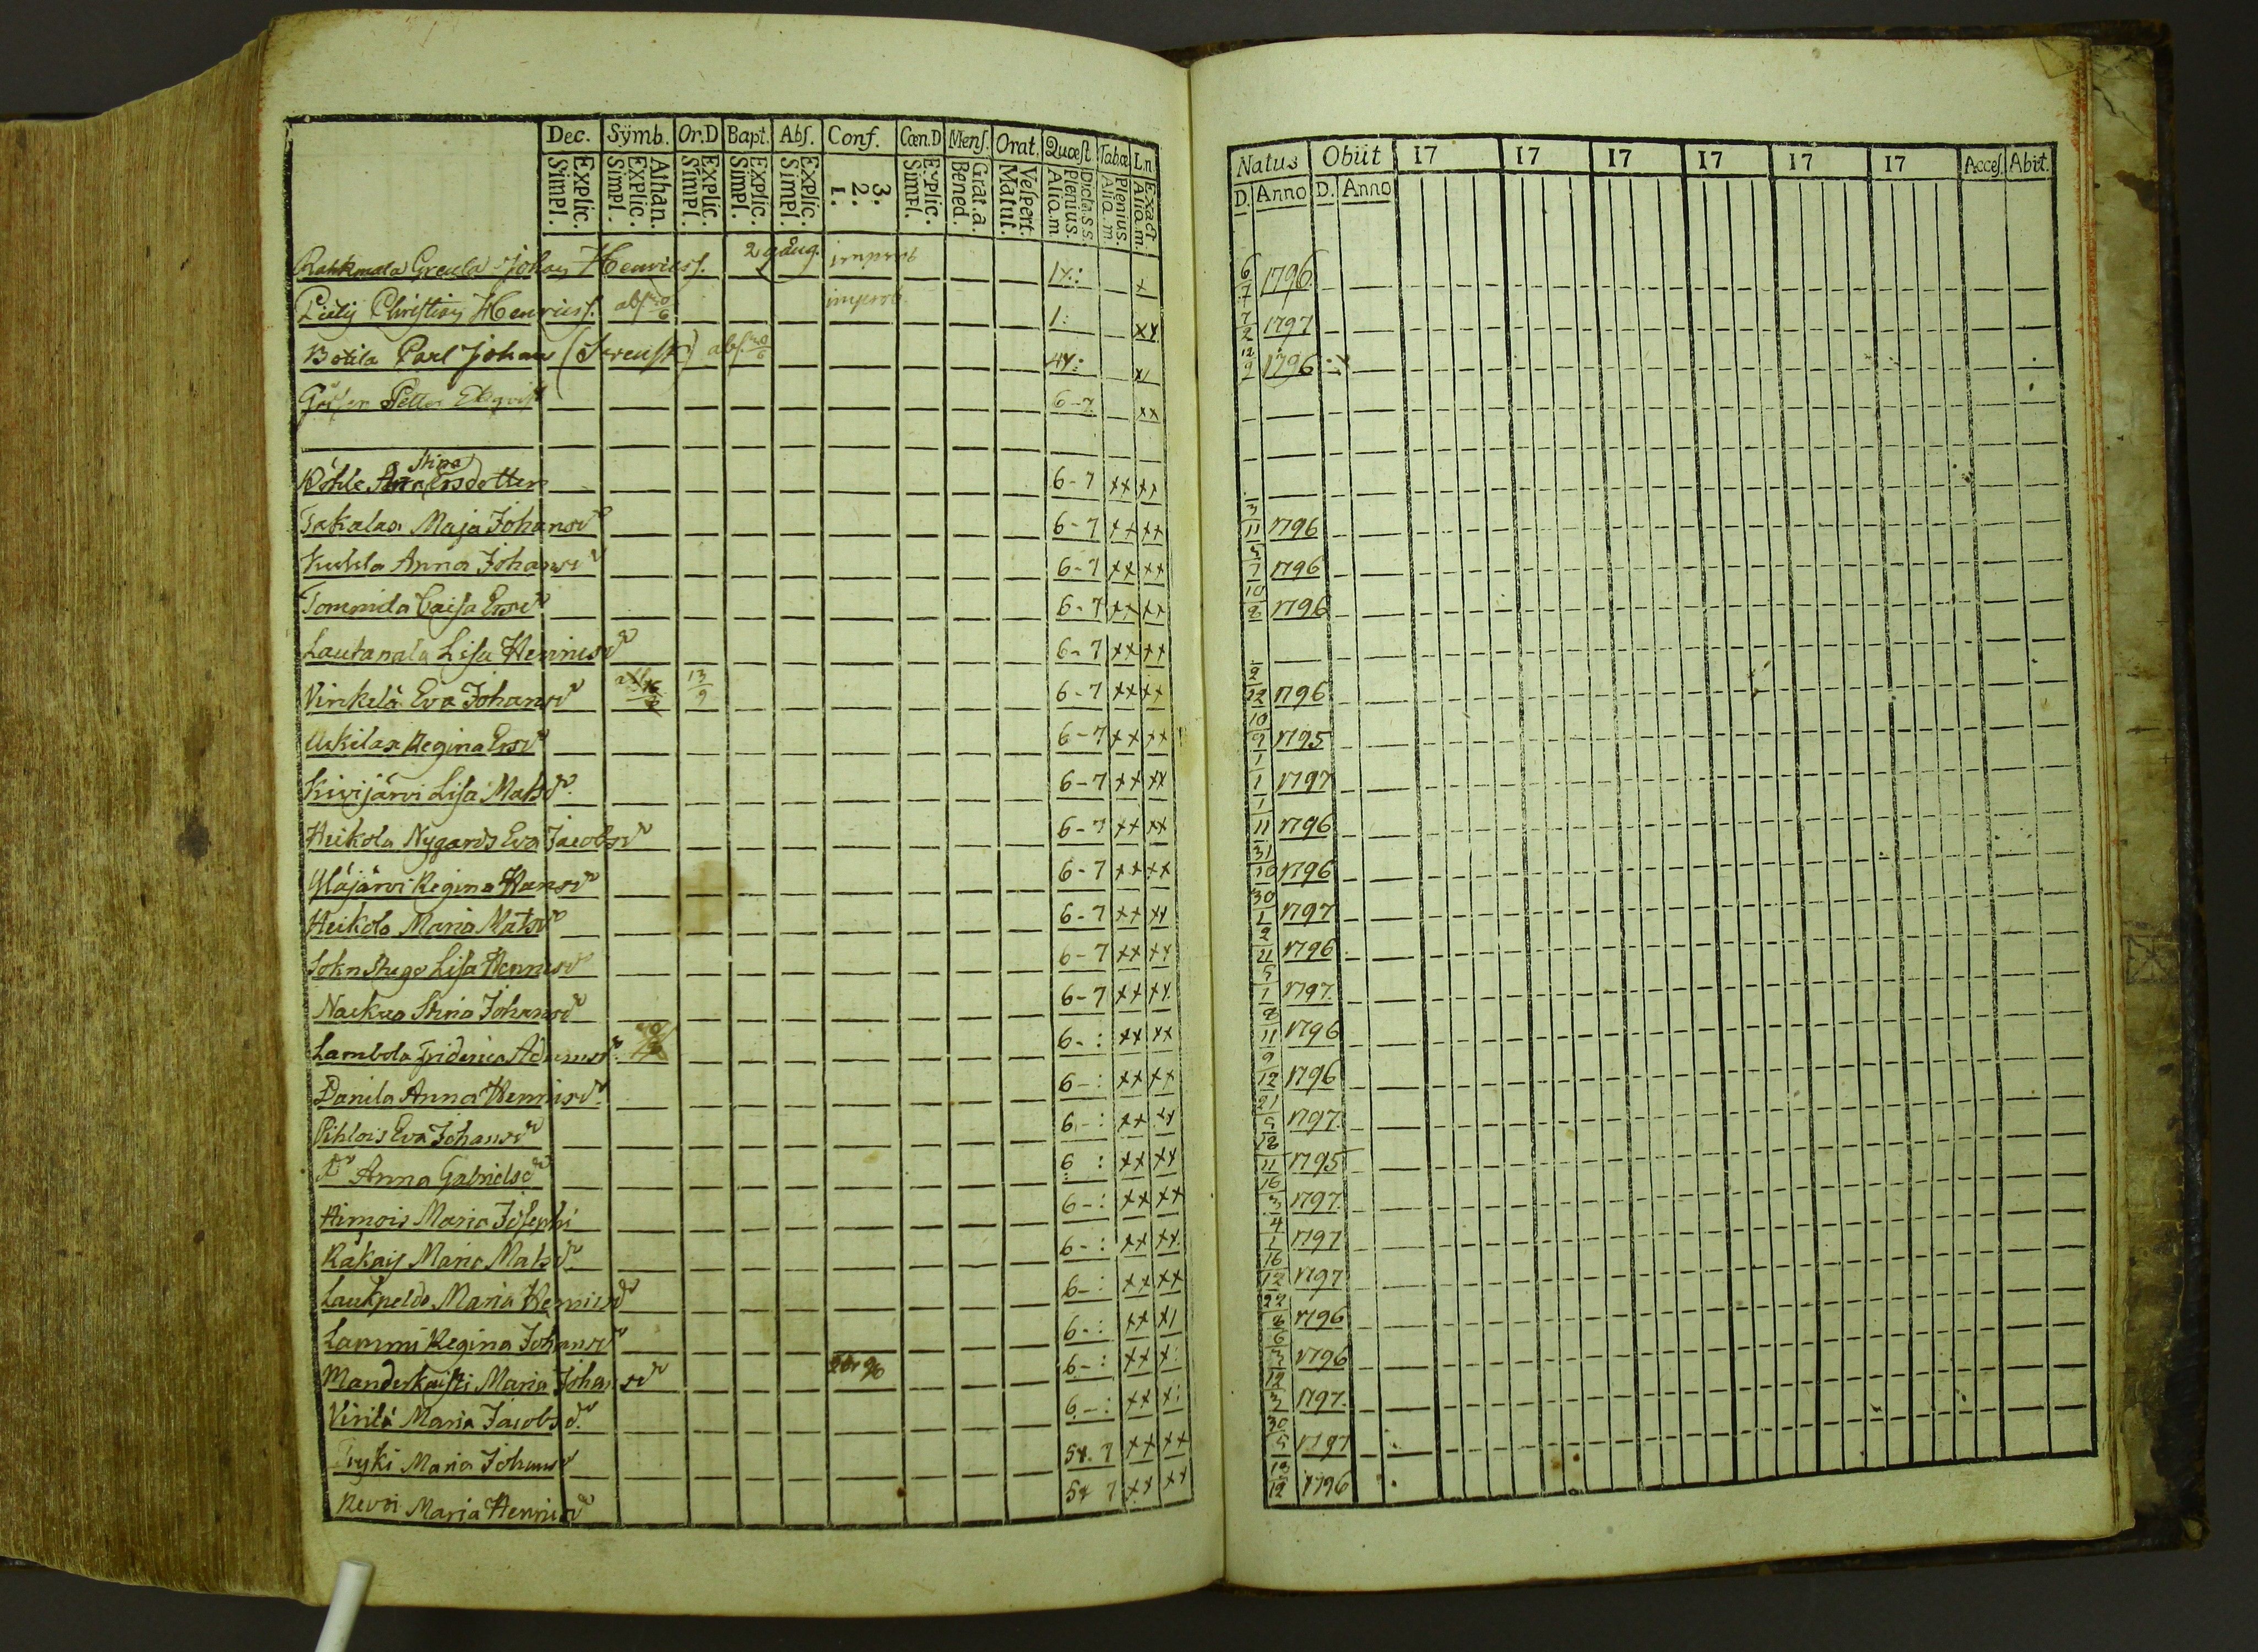 Dec. Sÿmb. Or.D Bapt. Abſ. Conf. Cœn.D Menſ. Orat. Quæſt. Tabæ L.n.
Explic. Simpl. Athan. Explic. Simpl. Explic. Simpl. Explic. Simpl. Explic. Simpl. 3. 2. 1. Explic. Simpl. Grat.a. Bened. Veſpert. Matut. Dicta.S.S. Plenius. Alia.m. Plenius. Alia.m Exact Alia.m.
Greula Johan Henricsſ. 2 gång. improb 1x: x
Christian Henricsſ. abſ 20/6 improb. 1: xx
Botila Carl Johan abſ. 20/6 4x: x
Petter 6-7 xx
Stina
Köhle Ersdotter 6-7 xx xx
Takalax Maja Johansdr 6-7 xx xx
Kukila Anna Johansdr 6-7 xx xx
Tommila Caiſa Ersdr 6-7 xx xx
Lautamala Liſa Henricsdr 6-7 xx xx
Vinkelä Eva Johansdr 13/9 6-7 xx xx
Regina Ersdr 6-7 xx xx
Kivijärvi Liſa Matsdr. 6-7 xx xx
Heikola Nygards Eva Jacobsdr 6-7 xx xx
Yläjärvi Regina Hansdr 6-7 xx xx
Heikola Maria Matsdr 6-7 xx xx
Liſa Henricsdr 6-7 xx xx
Stina Johansdr 6-7 xx xx
Lambola Friderica Adamsdr. 6-: xx xx
Danila Anna Henricsdr 6-: xx xx
Pihlois Eva Johansdr 6-: xx xx
Dr Anna Gabrielsdr 6 : xx xx
Himois Maria Joſephi 6-: xx xx
Maria Matsdr 6-: xx xx
Laukpeldo Maria Henricsdr 6-: xx xx
Lammi Regina Johansdr 6-: xx
Manderkaiſti Maria Johansdr 6-: xx x:
Virilä Maria Jacobsdr. 6-: xx x:
Maria Johansdr 5x. 7 xx xx
Nevoi Maria Henricsdr 5x 7 xx xx
Natus Obiit 17 17 17 17 17 17 Acceſ. Abit.
D. Anno D. Anno
6/7 1796
7/2 1797
12/9 1796
3/11 1796
3/7 1796
10/8 1796
2/22 1796
10/9 1795
1/1 1797
1/11 1796
31/10 1796
30/1 1797
2/21 1796
5/1 1797.
8/11 1796
9/12 1796
21/5 1797.
18/11 1795
16/3 1797.
4/1 1797
16/12 1797
22/8 1796
6/3 1796
12/3 1797.
30/5 1797
18/12 1796